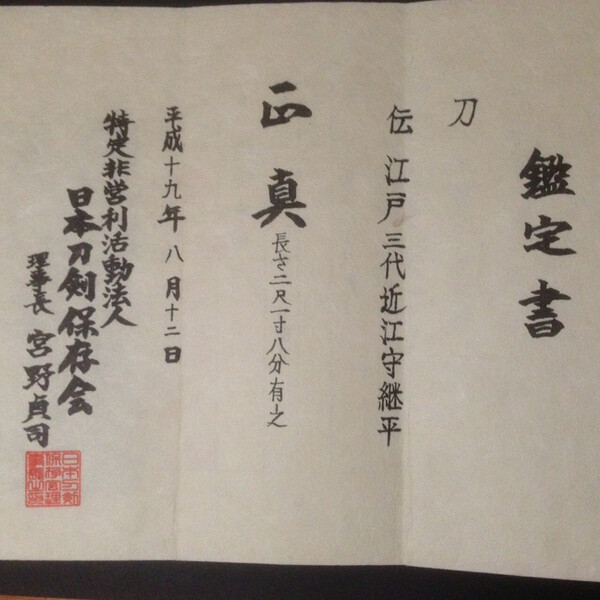 鑑定書
刀
伝 江戸三代近江守継平
正真
長さ二尺一寸八分有之
平成十九年八月十二日
特定非営利活動法人
日本刀剣保存会
理事長 宮野貞司